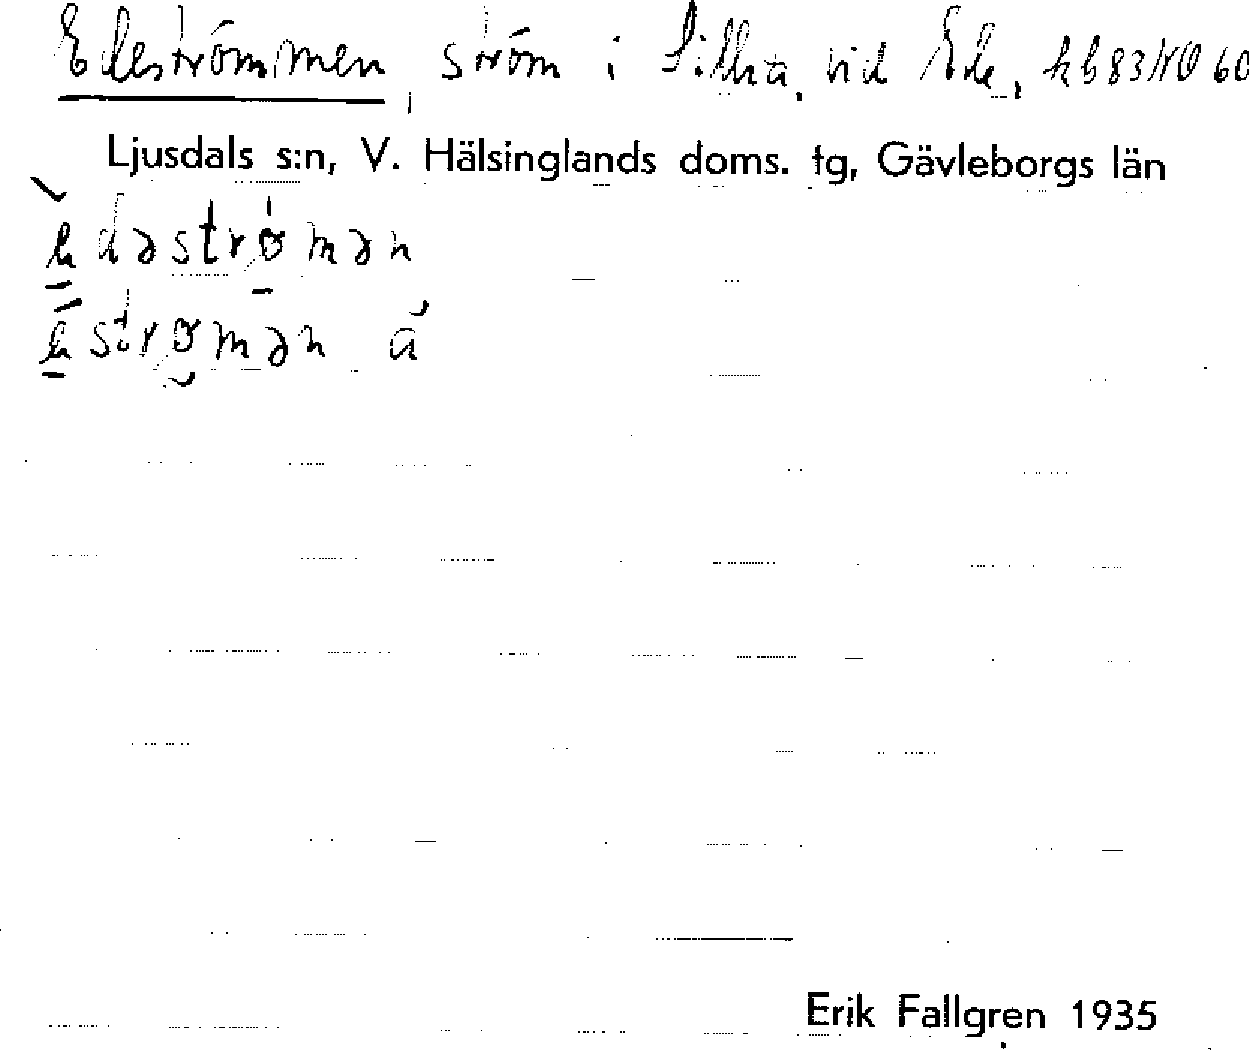 Edeströmmen, ström i vid Ede, kb 83 NO 60
Ljusdals s:n, V. Hälsinglands doms. tg, Gävleborgs län
edəströmən
eströmən a
Erik Fallgren 1935